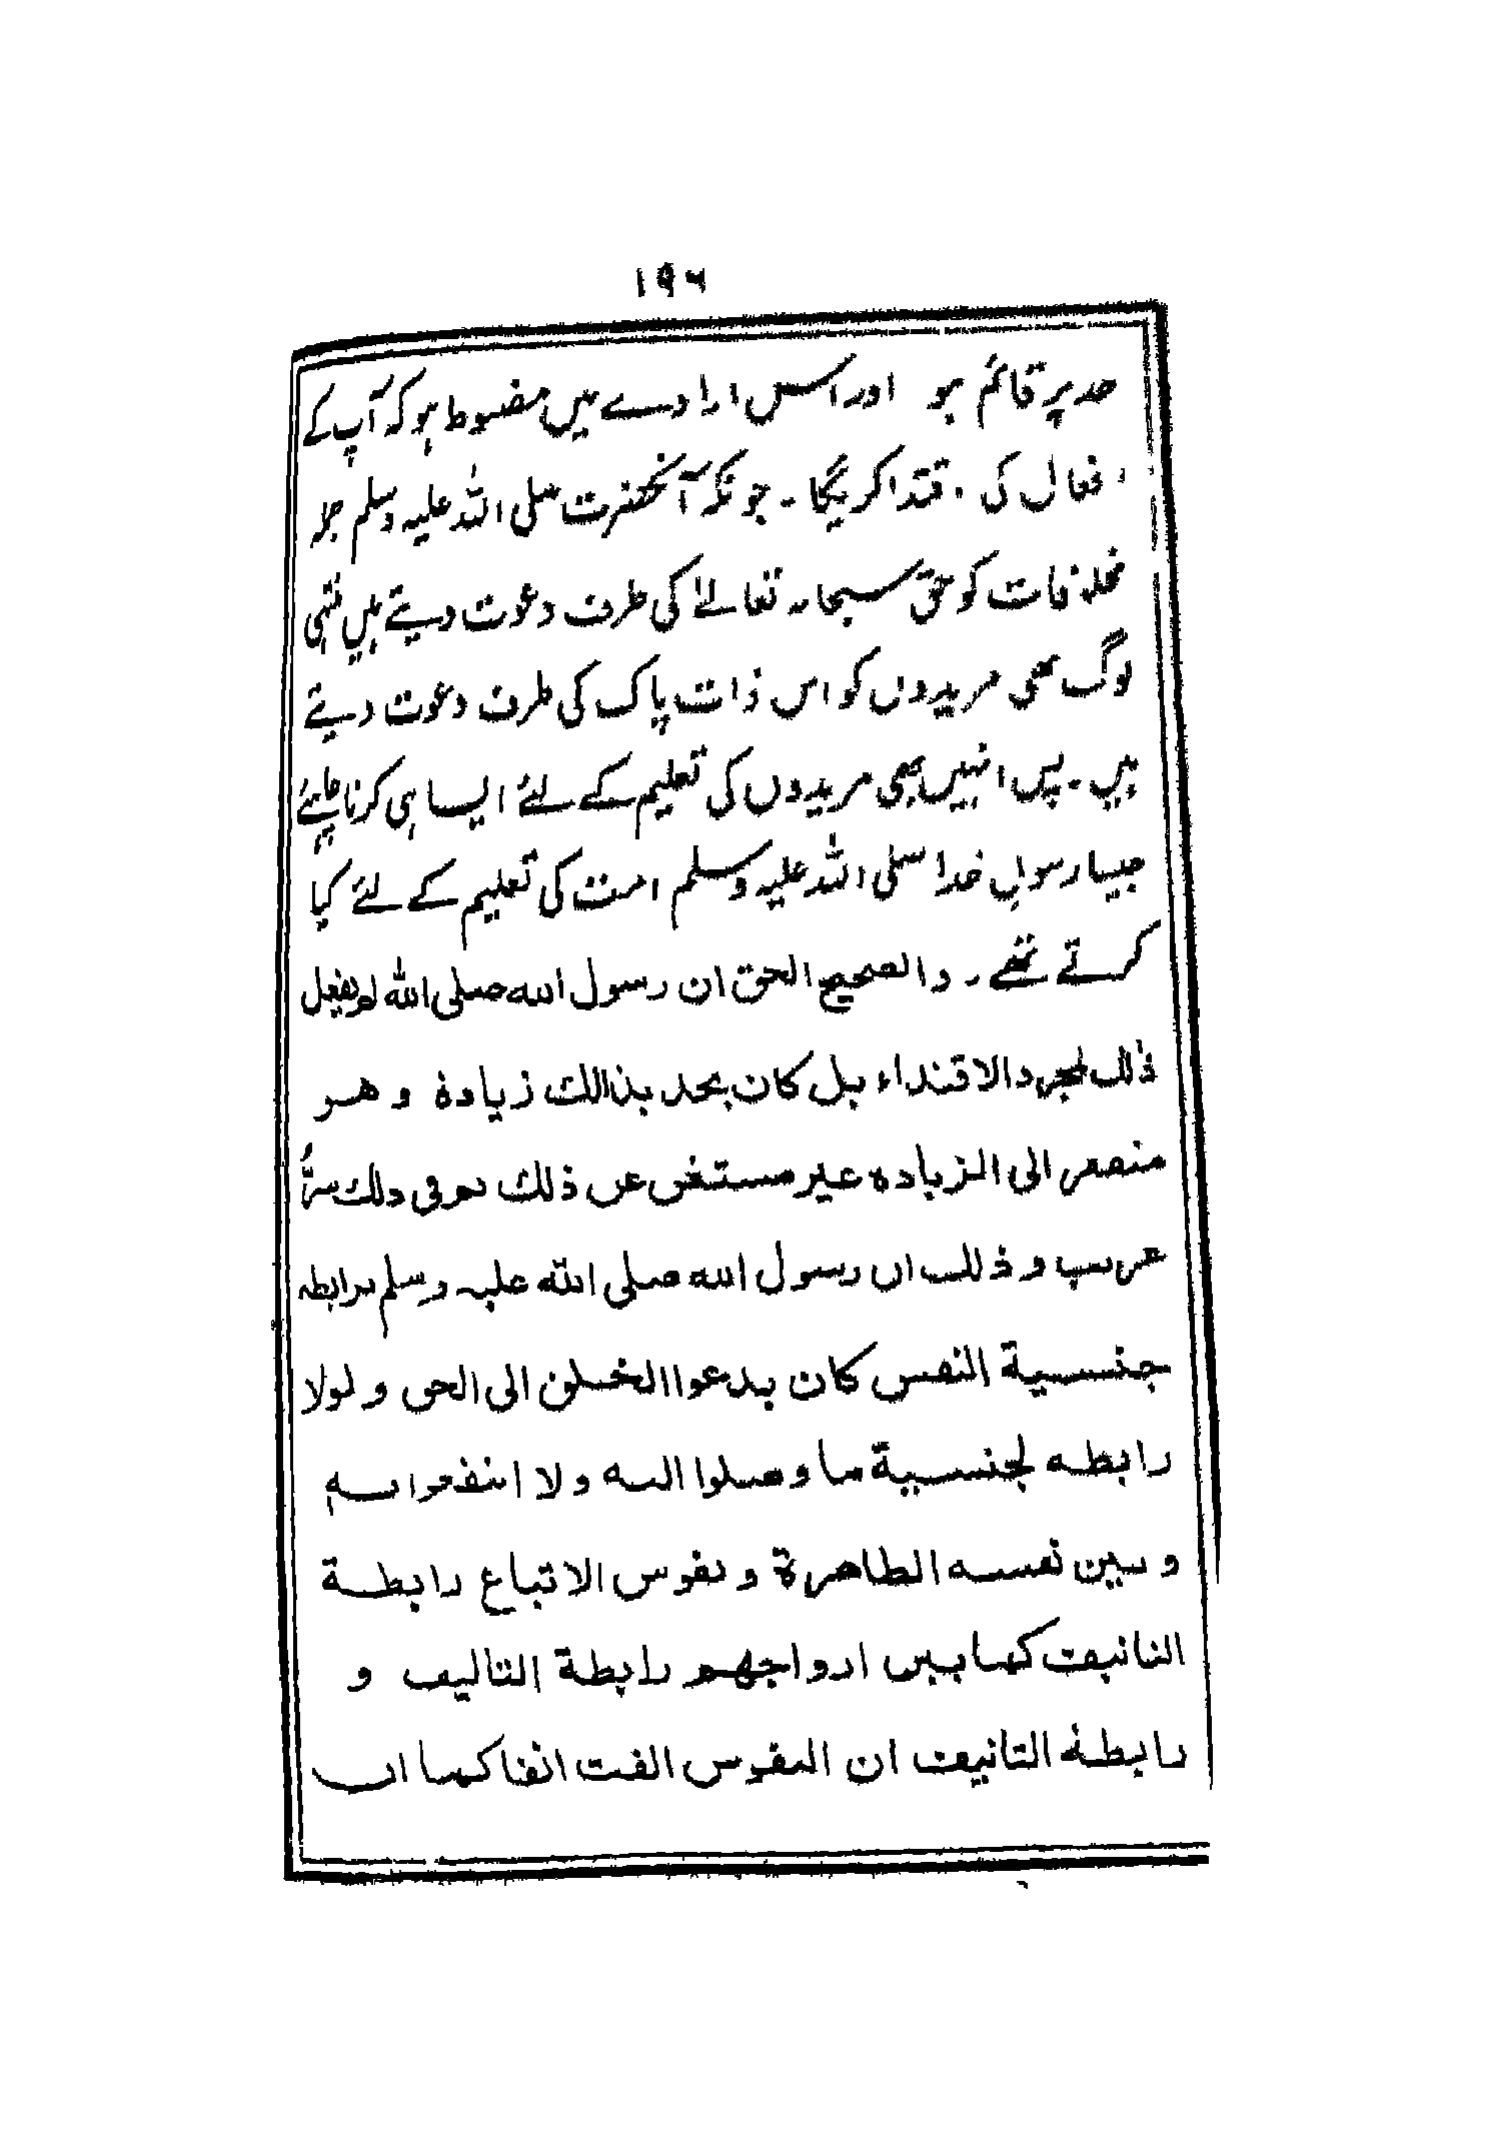 ۱۹۶
حد پر قائم ہو اور اس ارادے میں مضبوط ہو کہ آپ کے
افعال کی اقتدا کریگا۔ چونکہ آنحضرت صلی اللہ علیہ وسلم جملہ
مخلوقات کو حق سبحانہ تعالےٰ کی طرف دعوت دیتے ہیں منتہی
لوگ بھی مریدوں کو اس ذات پاک کی طرف دعوت دیتے
ہیں۔ پس انہیں بھی مریدوں کی تعلیم کے لئے ایسا ہی کرنا چاہئے
جیسا رسولِ خدا صلی اللہ علیہ وسلم امت کی تعلیم کے لئے کیا
کرتے تھے۔ والصحیح الحق ان رسول اللہ صلی اللہ لم یفعل
ذٰلک لمجرد الاقتداء بل کان یجد بذالک زیادة وھو
منصص الی الزیادہ غیر مستغن عن ذلک ثم فی ذلک سرٌّ
غریب و ذلک ان رسول اللہ صلی اللّہ علیہ وسلم برابطہ
جنسیة النفس کان یدعوا الخلق الی الحق و لولا
رابطہ لجنسیة ما وصلوا الیہ ولا انتفعوا بہ
و بین نفسہ الطاھرة و نفوس الاتباع رابطة
التانیف کما بین ارواجھم رابطة التالیف و
رابطة التانیف ان النفوس الفت انفا کما ان